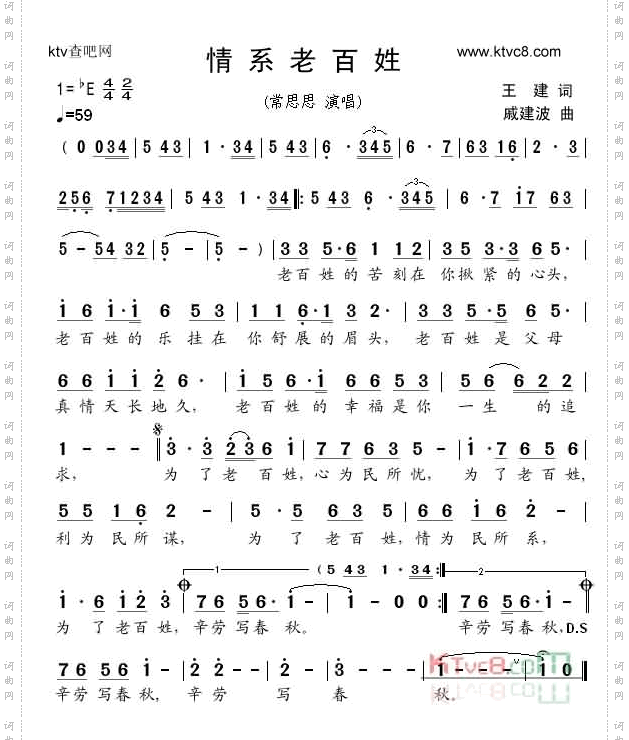 ktv查吧网
情系老百姓
www.ktvc8.com
1=♭E 4/4 2/4
♩=59
(常思思 演唱)
王 建 词
戚建波 曲
( 0 034 | 5 43 | 1 · 34 | 5 43 | 6 · 345 | 6 · 7 | 63 16 · | 2 · 3 |
256 71234 | 5 43 1 · 34 :| 5 43 6 · 345 | 6 · 7 17 63 |
5 - 54 32 | 5 - 5 - | 5 - ) | 33 5·6 1 12 | 35 3·3 65 · |
老百姓的苦刻在你揪紧的心头,
1 6 1·1 6 53 | 11 6·1 32 · | 3 6 1 653 | 5·6
老百姓的乐挂在你舒展的眉头, 老百姓是父母
66 11 62 · | 116 5·1 66 53 | 56 622 |
真情天长地久, 老百姓的幸福是你一生 的追
1 - - - | 3 · 3 · | 2 36 11 · | 77 635 · | 1 · 7 65 6 · |
求, 为了老百姓,心为民所忧, 为了老百姓,
55 162 - | 5 · 5 · | 3 · 2 11 · | 66 162 - |
利为民所谋, 为了老百姓,情为民所系,
1. ( 5 43 1 · 34 :| 2.
1 · 6 123 · | 76 56 · 1 - | 1 - 00 :| 76 56 · 1 - |
为了老百姓,辛劳写春秋。 辛劳写春秋,D.S
KTvc8.com
76 56 · 1 - | 2 2 · | 3 - | 2 - | 1 - | 1 - | 1 0 |
辛劳写春秋,辛劳 写 春 秋。
词曲网